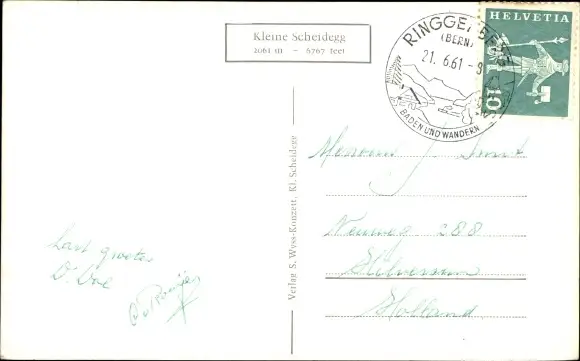 Kleine Scheidegg
2061 m - 6767 feet
RINGGENBERG
(BERN)
21. 6.61 - 9
BADEN UND WANDERN
HELVETIA
10
Verlag S. Wyss-Konzett, Kl. Scheidegg
J. Smit
288
Hilversum
Holland
Hart. groeten